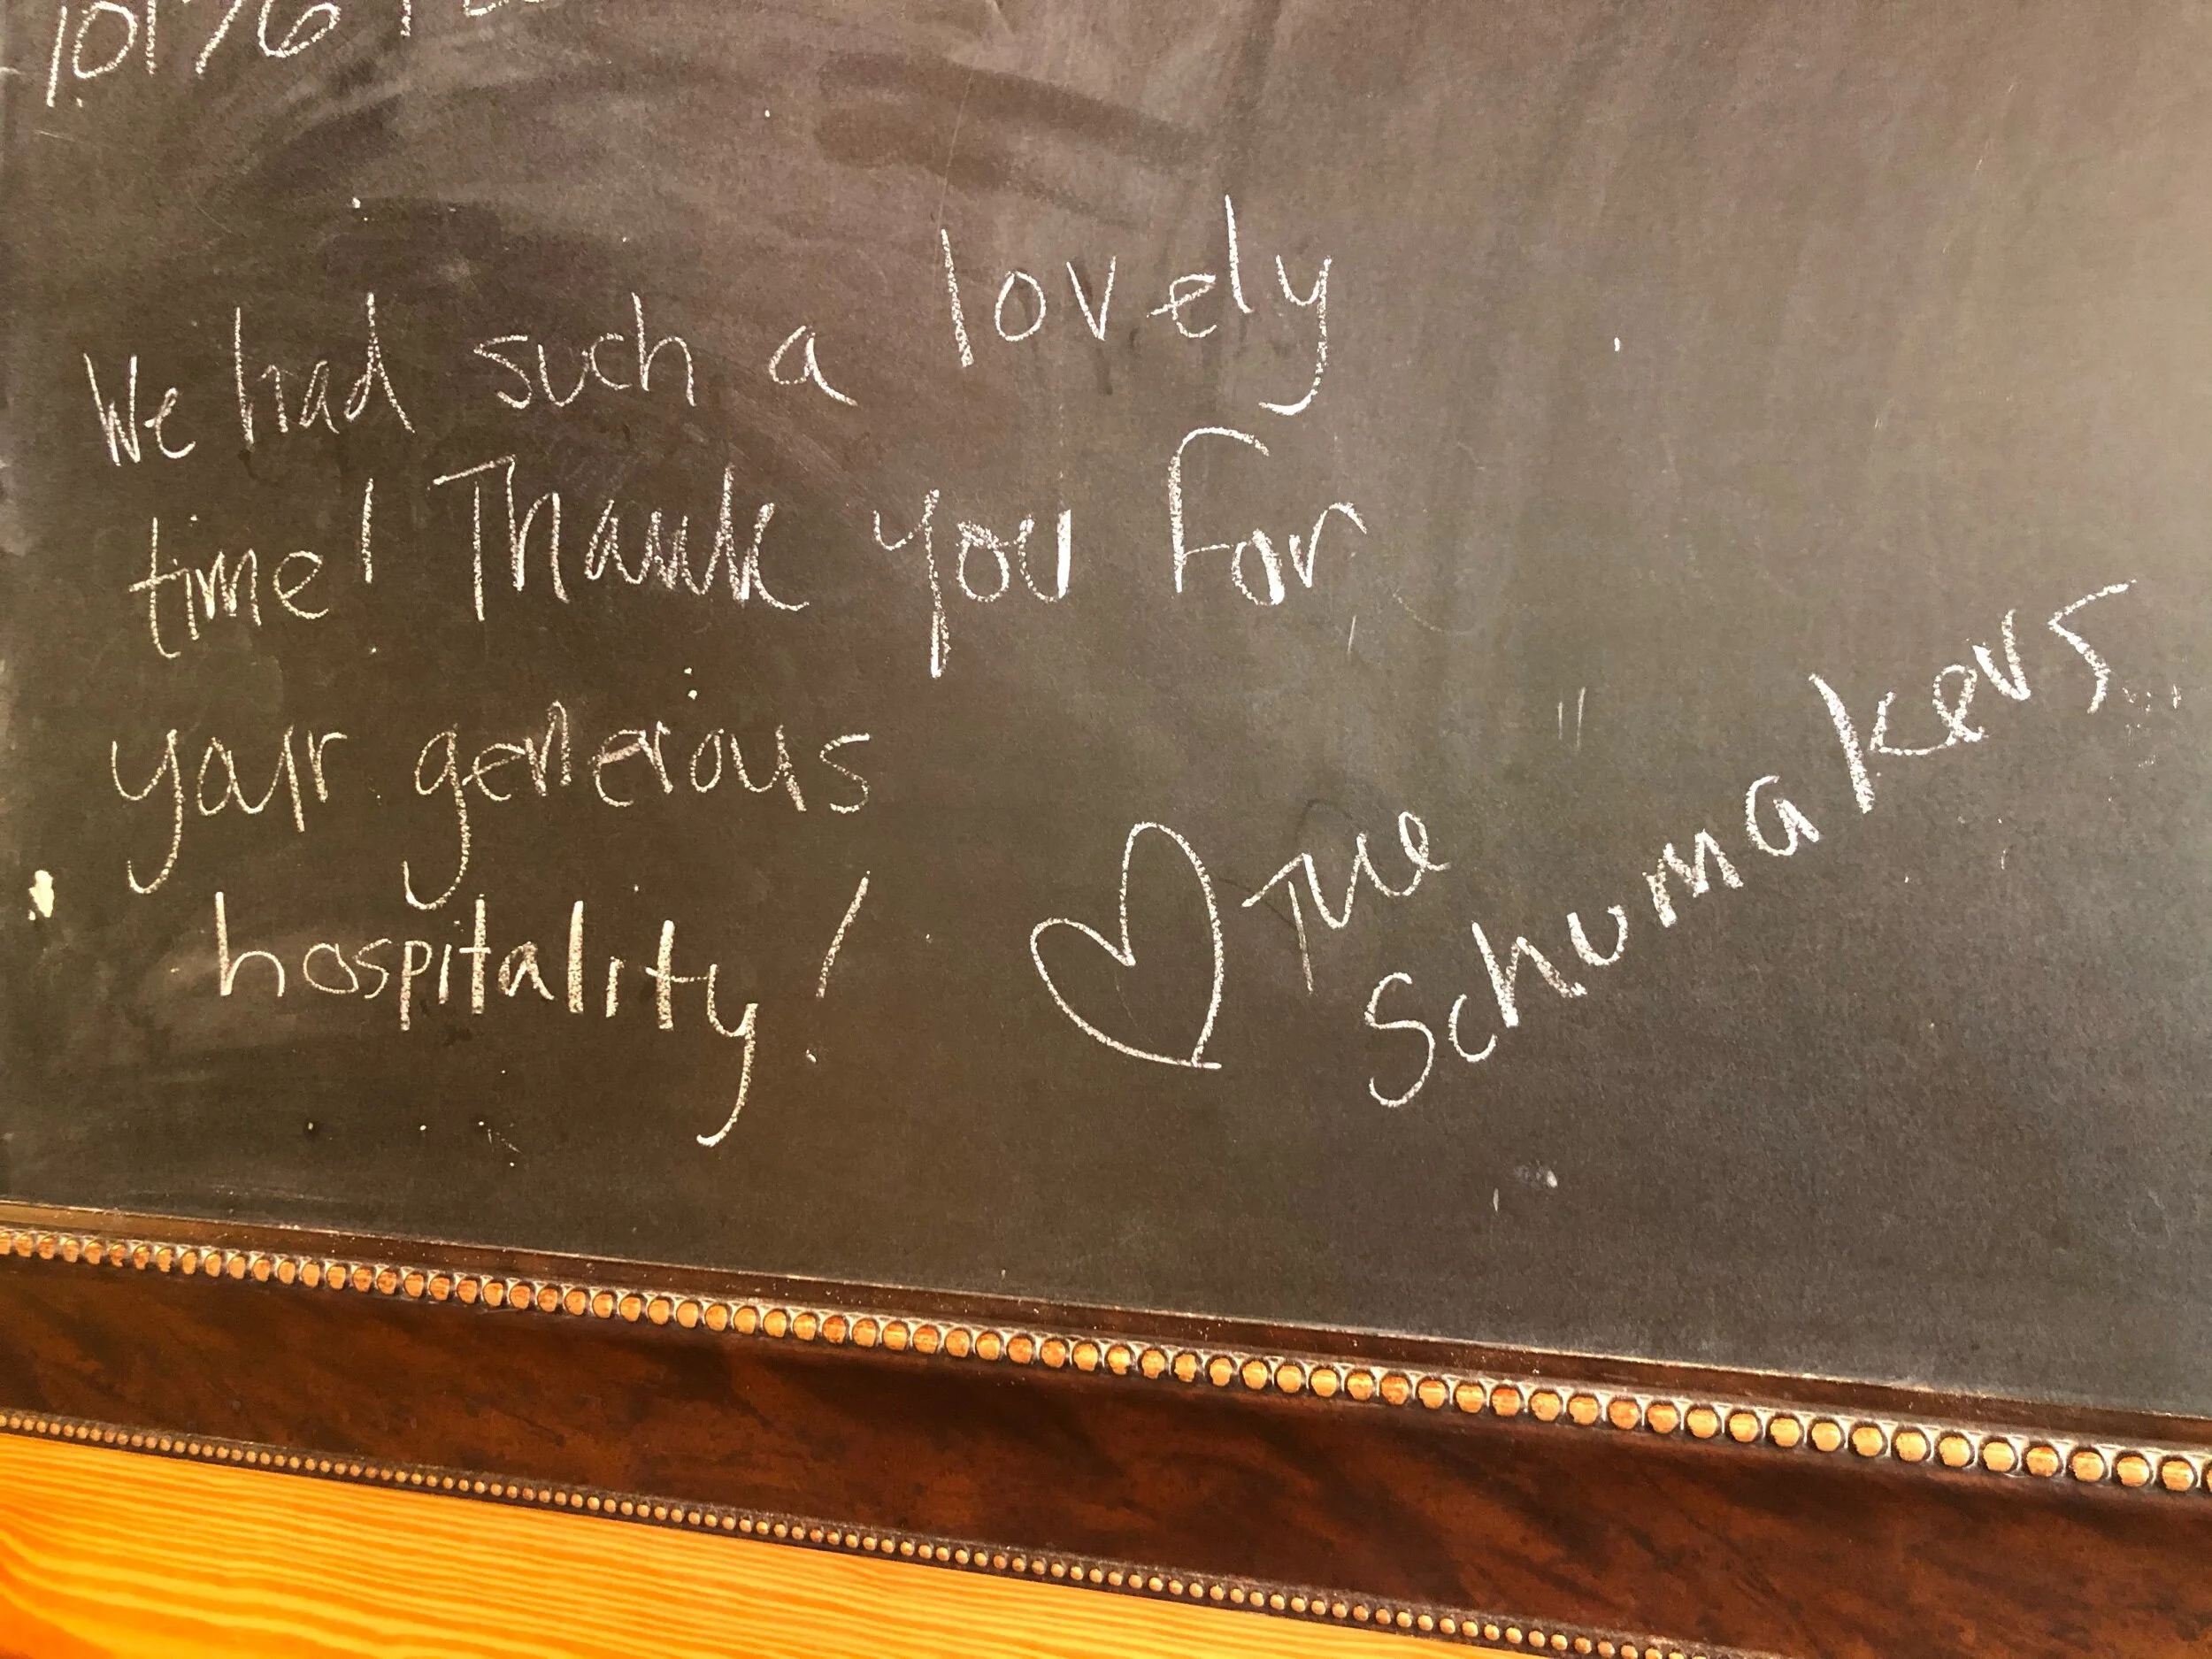 We had such a lovely
time! Thank you for
your generous
hospitality!
♡ The
Schumakers